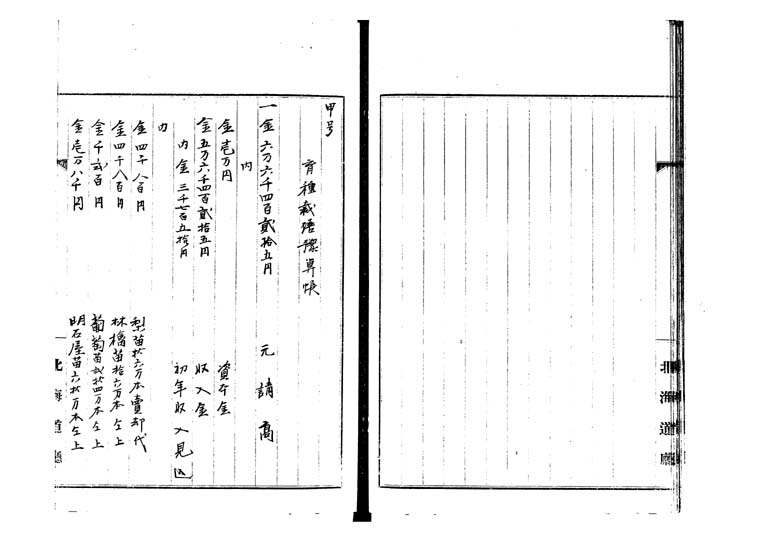 甲号
育種栽培豫算帳
一金六万六千四百貳拾五円 元請高
内
金壱万円 資本金
金五万六千四百貳拾五円 収入金
内金三千七百五拾円 初年収入見込
内
金四千八百円 梨苗拾六万本賣却代
金四千八百円 林檎苗拾六万本仝上
金千貳百円 葡萄苗貳拾四万本仝上
金壱万八千円 明石屋苗六拾万本仝上
北海道廳
北海道廳